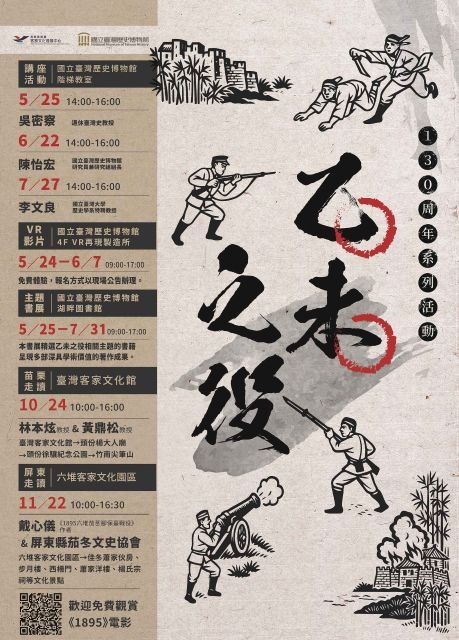 客家文化發展中心
國立臺灣歷史博物館
National Museum of Taiwan History
講座活動
國立臺灣歷史博物館
階梯教室
5/25 14:00-16:00
吳密察 退休臺灣史教授
6/22 14:00-16:00
陳怡宏 國立臺灣歷史博物館
研究員兼研究組組長
7/27 14:00-16:00
李文良 國立臺灣大學
歷史學系特聘教授
VR影片
國立臺灣歷史博物館
4F VR再現製造所
5/24－6/7 09:00-17:00
免費體驗，報名方式以現場公告辦理。
主題書展
國立臺灣歷史博物館
湖畔圖書館
5/25－7/31 09:00-17:00
本書展精選乙未之役相關主題的書籍
呈現多部深具學術價值的著作成果。
苗栗走讀
臺灣客家文化館
10/24 10:00-16:00
林本炫教授 & 黃鼎松教授
臺灣客家文化館→頭份楊大人廟
→頭份徐驤紀念公園→竹南尖筆山
屏東走讀
六堆客家文化園區
11/22 10:00-16:30
戴心儀 作者
& 屏東縣茄冬文史協會
六堆客家文化園區→佳冬蕭家伙房、
步月樓、西柵門、蕭家洋樓、楊氏宗
祠等文化景點
歡迎免費觀賞
《1895》電影
乙未
之役
130周年系列活動